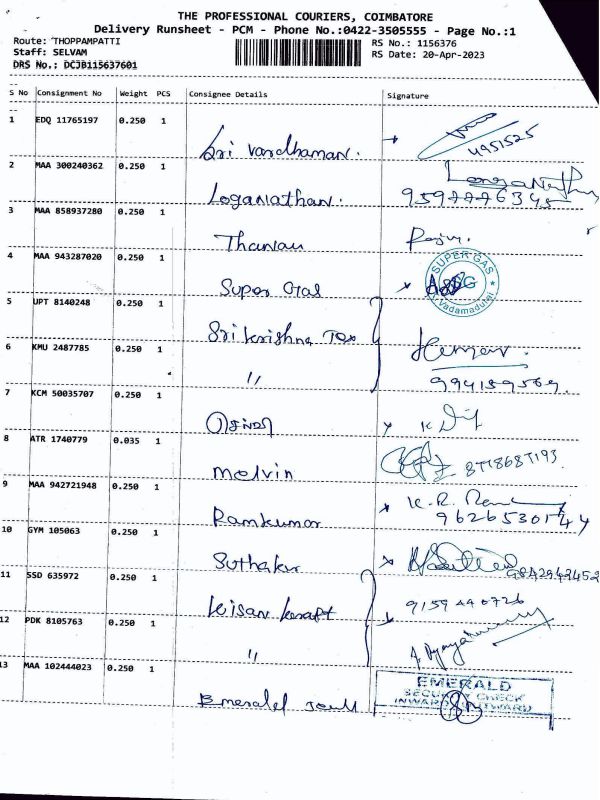 THE PROFESSIONAL COURIERS, COIMBATORE
Delivery Runsheet - PCM - Phone No.:0422-3505555 - Page No.:1
Route: THOPPAMPATTI RS No.: 1156376
Staff: SELVAM RS Date: 20-Apr-2023
DRS No.: DCJB115637601
S No Consignment No Weight PCS Consignee Details Signature
1 EDQ 11765197 0.250 1 Sri Vardhaman. 4951525
2 MAA 300240362 0.250 1 Loganathan.
3 MAA 858937280 0.250 1
4 MAA 943287020 0.250 1 Super Gas SUPER GAS Vadamadurai
5 UPT 8140248 0.250 1 Sri Krishna Tex
6 KMU 2487785 0.250 1 " 994159569.
7 KCM 50035707 0.250 1
8 ATR 1740779 0.035 1 Melvin
9 MAA 942721948 0.250 1 Ramkumar K.R.
10 GYM 105063 0.250 1 Suthakar
11 SSD 635972 0.250 1 Kisan kraft 9159440726
12 PDK 8105763 0.250 1 "
13 MAA 102444023 0.250 1 Emerald
EMERALD
SECURITY CHECK
INWARD OUTWARD